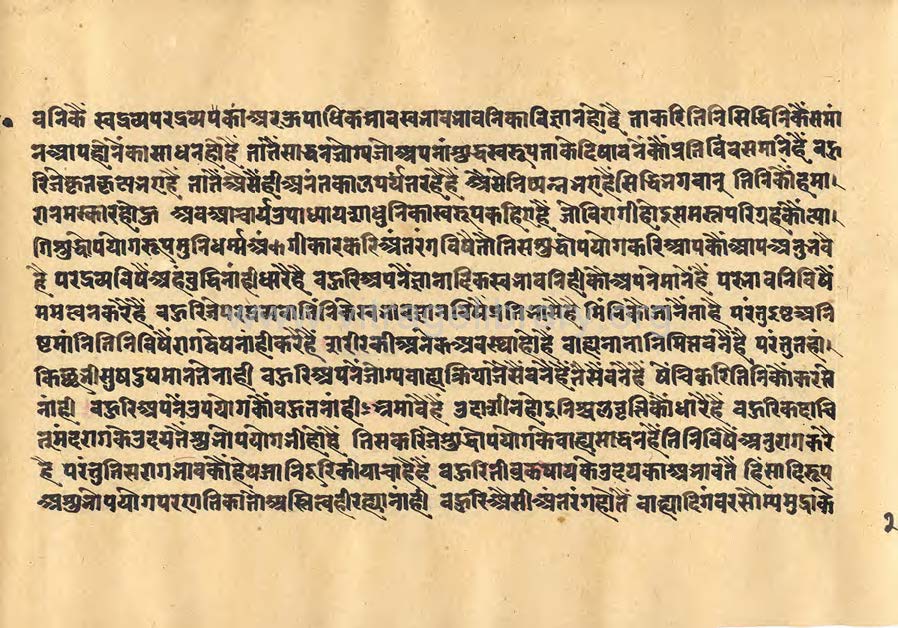 वनिकैं स्वद्रव्यपरद्रव्यपकांअरऊपाधिकभावस्वभावभावनिकाविज्ञानहोहै ताकरितिनिसिद्धिनिकैंसमां
नआपहोनेंकासाधनहोहै तातैंसाधनेंजोग्यजोअपनांशुद्धस्वरूपताकेदिषावनेंकौंप्रतिबिंबसमानहै बहु
रिजेकृतकृत्यभएहै तातैंअैसैंहीअनंतकालपर्यंतरहैहै अैसेनिष्पन्नभएहैसिद्धिभगवान् तिनिकौंहमा।
रानमस्कारहोहु अबआचार्यउपाध्यायसाधुनिकास्वरूपकहिएहै जोविरागीहोइसमस्तपरिग्रहकौंत्या।
गिशुद्धोपयोगरूपमुनिधर्म्मअंगीकारकरिअंतरंगविषैतौतिसशुद्धोपयोगकरिआपकौंआपअनुभवै
है परद्रव्यविषैंअहंबुद्धिनांहीधारैहै बहुरिअपनेंज्ञानादिकस्वभावनिहीकौंअपनेमानेंहै परभावनिविषैं
ममत्वनकरैहै बहुरिजेपरद्रव्य
ष्टमांनितिनिविषैंरागद्वेषनाहीकरैहै शरीरकीअनेकअवस्थाहोहै बाह्यनानानिमित्तबनैहै परंतुतहां।
किछूभीसुषदुषमानतेनाही बहुरिअपनेंजोग्यबाह्यक्रियाजैसैंबनैहैतैसैंबनैहै षैंचिकरितिनिकौंकरते
नांही बहुरिअपनेंउपयोगकौंबहुतनांहीभ्रमावैहै उदासीनहोइनिश्चलवृत्तिकौंधारैहै बहुरिकदाचि
त्मंदरागकेउदयतैंशुभोपयोगभीहोहै तिसकरिजेशुद्धोपयोगकेबाह्यसाधनहैंतिनिविषैंअनुरागकरै
है परंतुतिसरागभावकौंहेयजानिदूरिकीयाचाहैहै बहुरितीव्रकषायकेउदयकाअभावतैं हिंसादिरूप
अशुभोपयोगपरणतिकातौअस्तित्वहीरह्यानांही बहुरिअैसीअंतरंगहोतैं बाह्यदिगंबरसोम्यमुद्राके
२